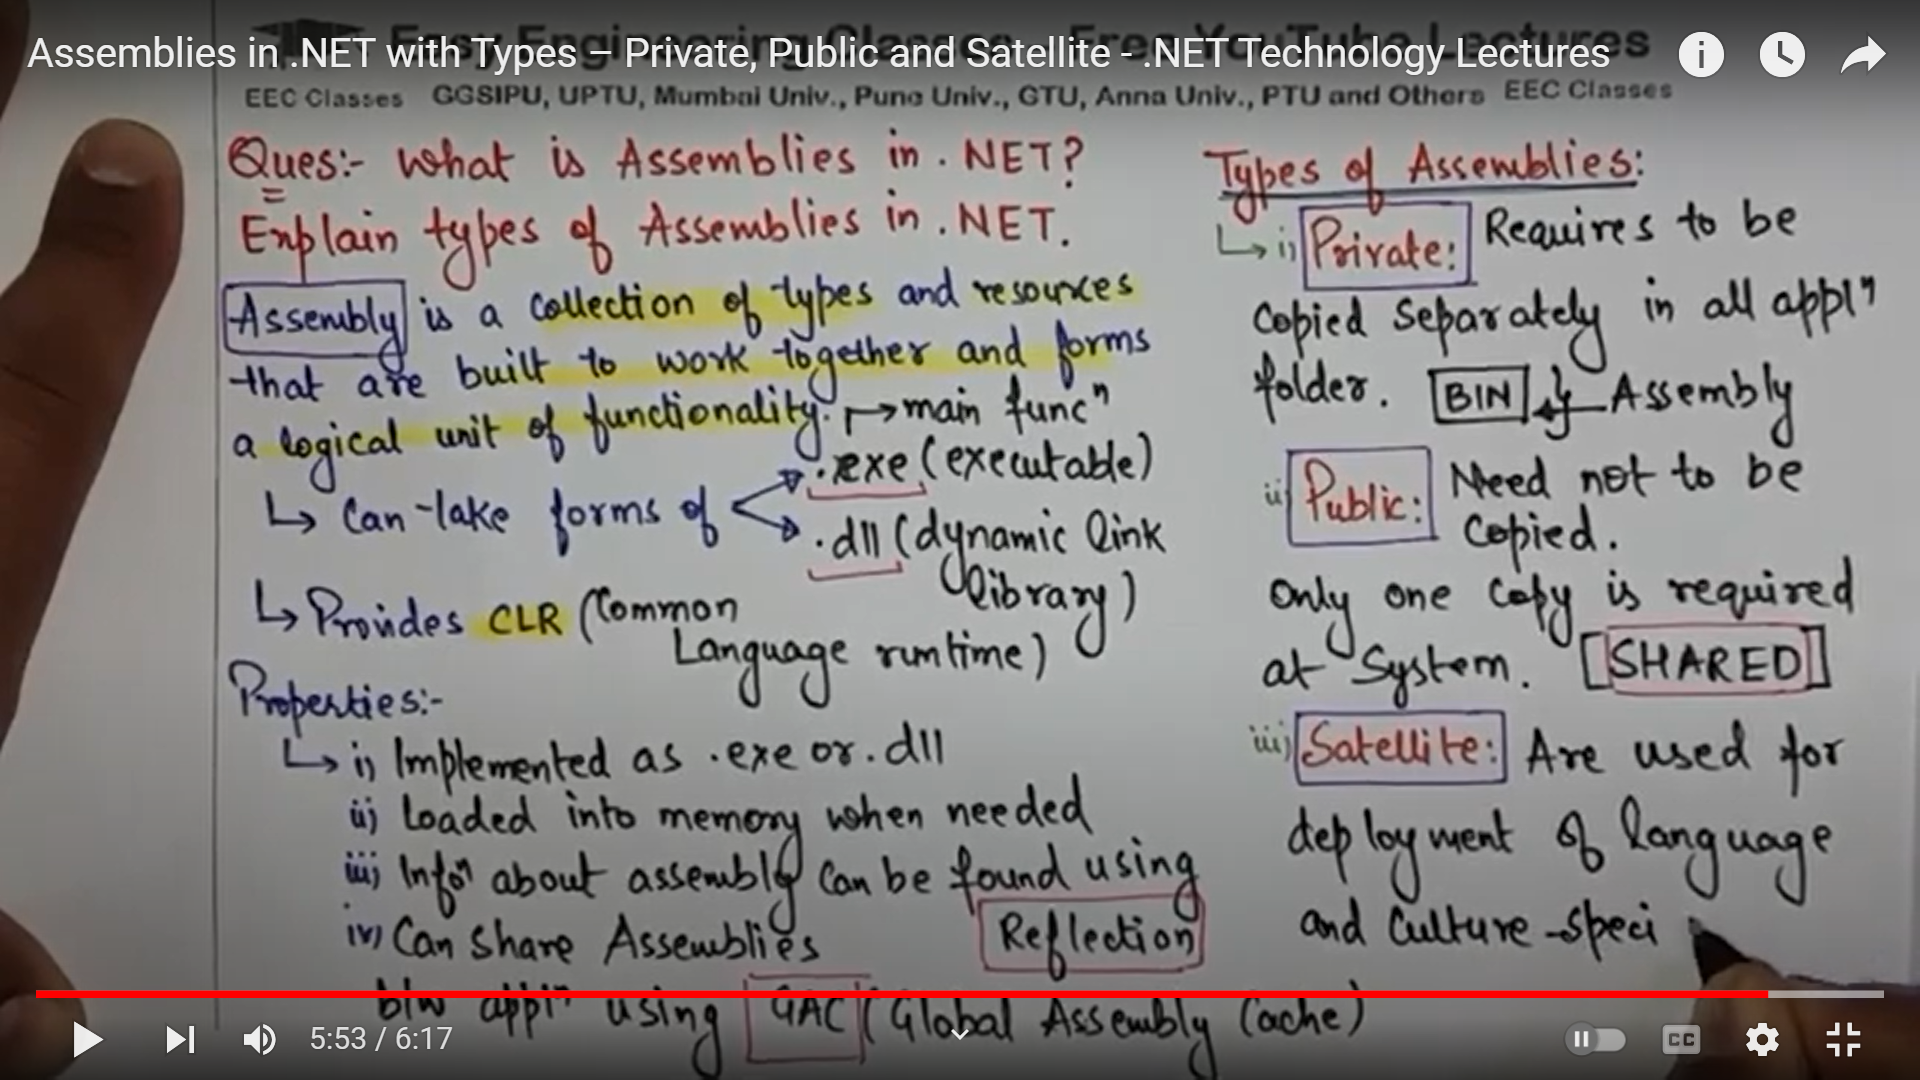 Assemblies in .NET with Types – Private, Public and Satellite - .NET Technology Lectures
Easy Engineering Classes - Free YouTube Lectures
EEC Classes GGSIPU, UPTU, Mumbai Univ., Pune Univ., GTU, Anna Univ., PTU and Others EEC Classes
Ques:- What is Assemblies in .NET?
Explain types of Assemblies in .NET.
Assembly is a collection of types and resources
that are built to work together and forms
a logical unit of functionality.
→ main funcⁿ
↳ Can take forms of
.exe (executable)
.dll (dynamic link
library)
↳ Provides CLR (Common
Language runtime)
Properties:-
↳ i) Implemented as .exe or .dll
ii) Loaded into memory when needed
iii) Infoⁿ about assembly can be found using
Reflection
iv) Can share Assemblies
b/w applⁿ using GAC (Global Assembly Cache)
Types of Assemblies:
↳ i) Private: Requires to be
copied separately in all applⁿ
folder. BIN Assembly
ii) Public: Need not to be
copied.
Only one copy is required
at System. [SHARED]
iii) Satellite: Are used for
deployment of language
and culture-speci
5:53 / 6:17
CC